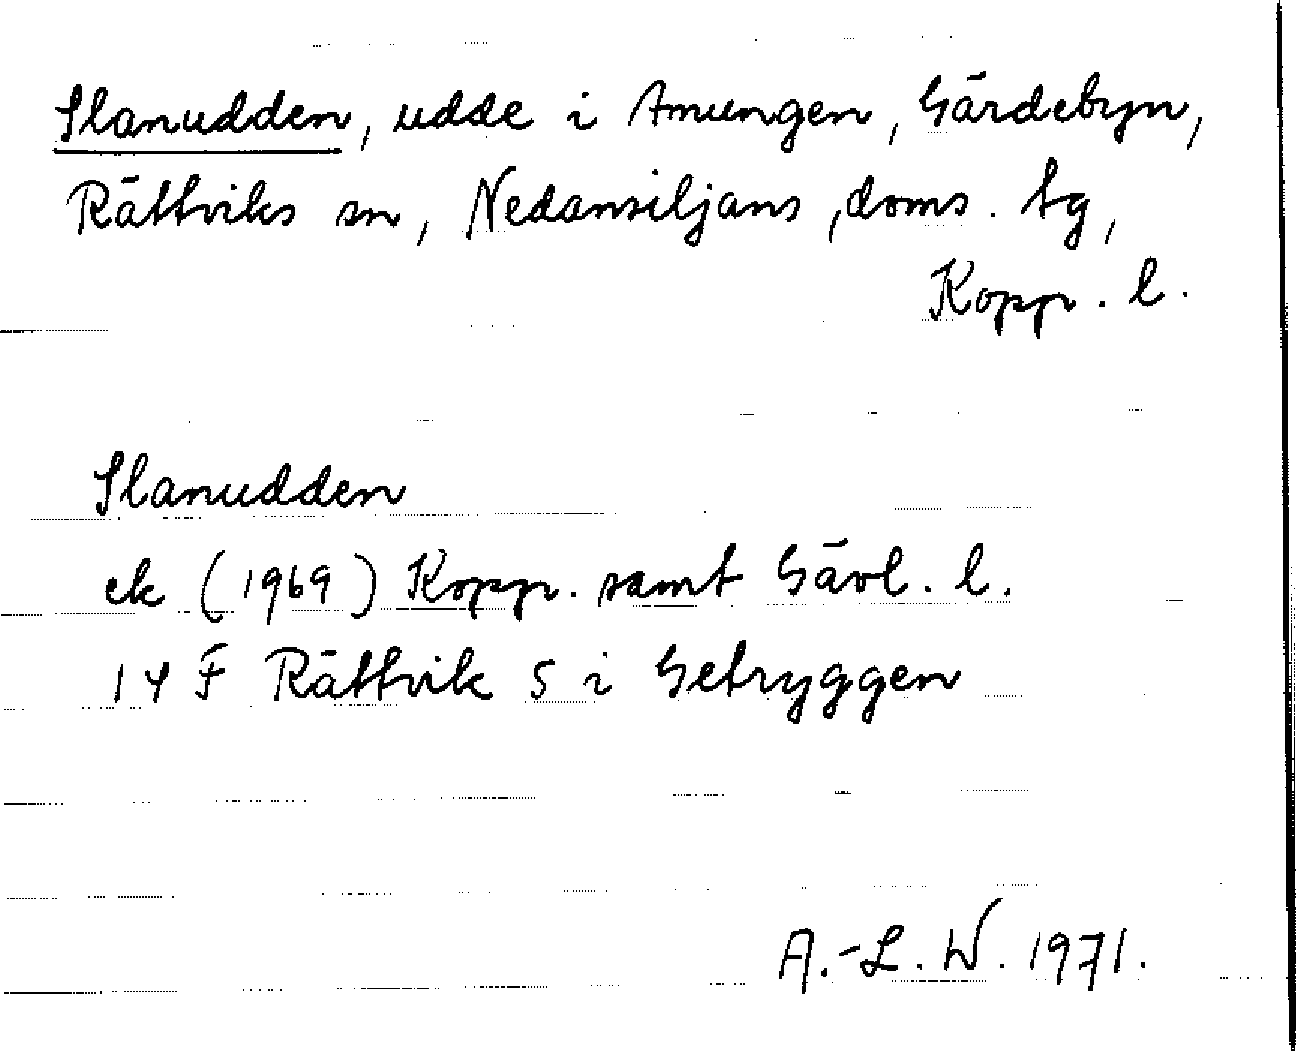 Slanudden, udde i Amungen, Gärdebyn,
Rättviks sn, Nedansiljans, doms. tg,
Kopp. l.
Slanudden
ek (1969) Kopp. samt Gävl. l.
14 F Rättvik S i Getryggen
A.-L. W. 1971.